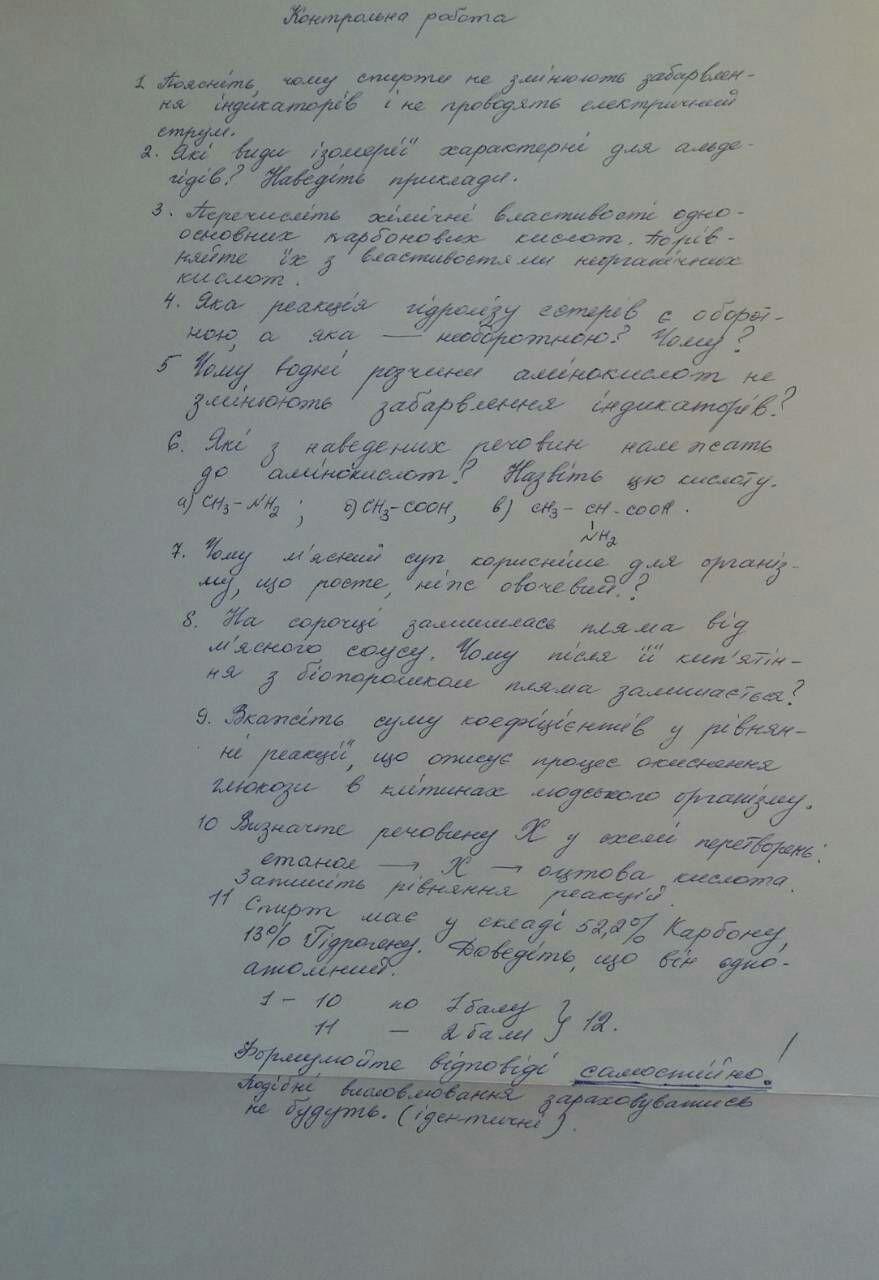 Контрольна робота
1. Поясніть, чому спирти не змінюють забарвлен-
ня індикаторів і не проводять електричний
струм.
2. Які види ізомерії характерні для альде-
гідів? Наведіть приклади.
3. Перечисліть хімічні властивості одно-
основних карбонових кислот. Порів-
няйте їх з властивостями неорганічних
кислот.
4. Яка реакція гідролізу естерів є оборот-
ною, а яка — необоротною? Чому?
5 Чому водні розчини амінокислот не
змінюють забарвлення індикаторів?
6. Які з наведених речовин належать
до амінокислот? Назвіть цю кислоту.
а) CH3-NH2; б) CH3-COOH, в) CH3-CH-COOH.
NH2
7. Чому м'ясний суп корисніше для організ-
му, що росте, ніж овочевий.?
8. На сорочці залишилась пляма від
м'ясного соусу. Чому після її кип'ятін-
ня з біопорошком пляма залишається?
9. Вкажіть суму коефіцієнтів у рівнян-
ні реакції, що описує процес окиснення
глюкози в клітинах людського організму.
10 Визначте речовину X у схемі перетворень:
етанол → X → оцтова кислота.
Запишіть рівняння реакцій.
11 Спирт має у складі 52,2% Карбону,
13% Гідрогену. Доведіть, що він одно-
атомний.
1 - 10 по 1 балу } 12.
11 - 2 бали
Формулюйте відповіді самостійно!
Подібні висловлювання зараховуватись
не будуть. (ідентичні).